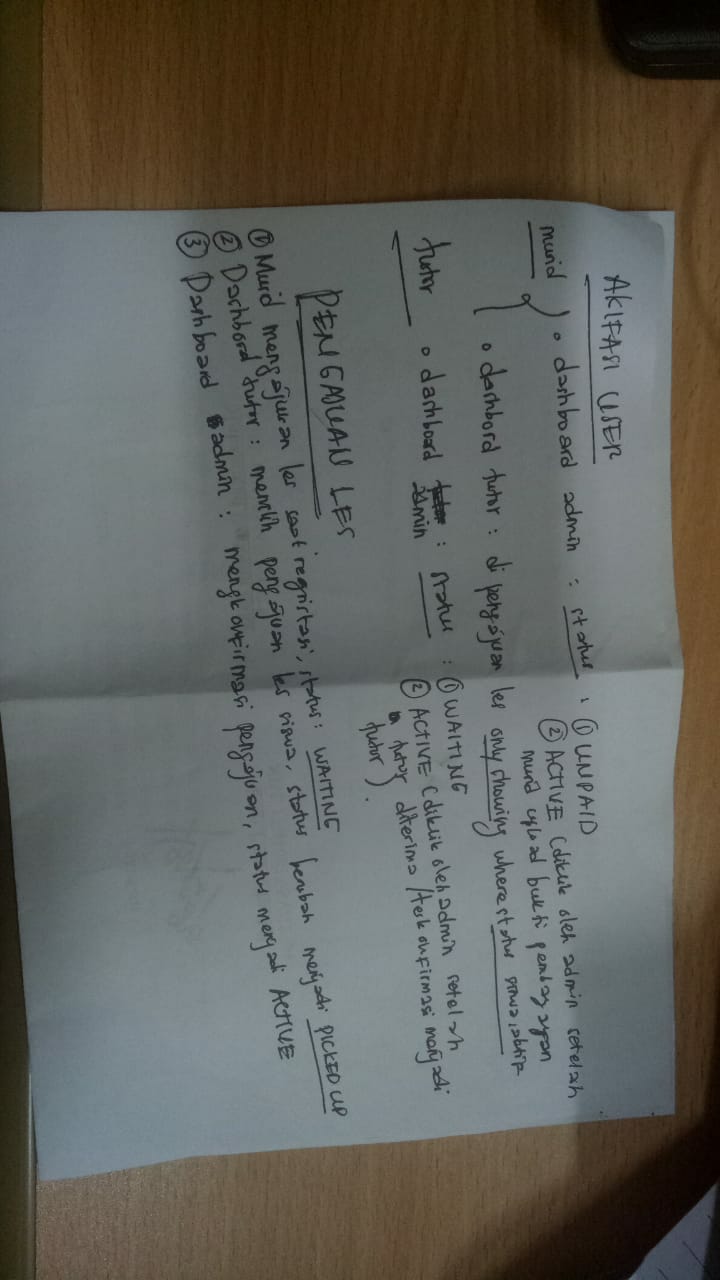 AKIFASI USER
murid } o dashboard admin : status : ① UNPAID
② ACTIVE (diklik oleh admin setelah
murid upload bukti pembayaran
o dashbord tutor : di pengajuan les only showing where status siswa aktif
tutor o dashboard admin : status : ① WAITING
② ACTIVE (diklik oleh admin setelah
tutor diterima / terkonfirmasi menjadi
tutor).
PENGAJUAN LES
① Murid mengajukan les saat regristasi, status: WAITING
② Dashbord tutor : memilih pengajuan les siswa, status berubah menjadi PICKED UP
③ Dashboard admin : mengkonfirmasi pengajuan, status menjadi ACTIVE